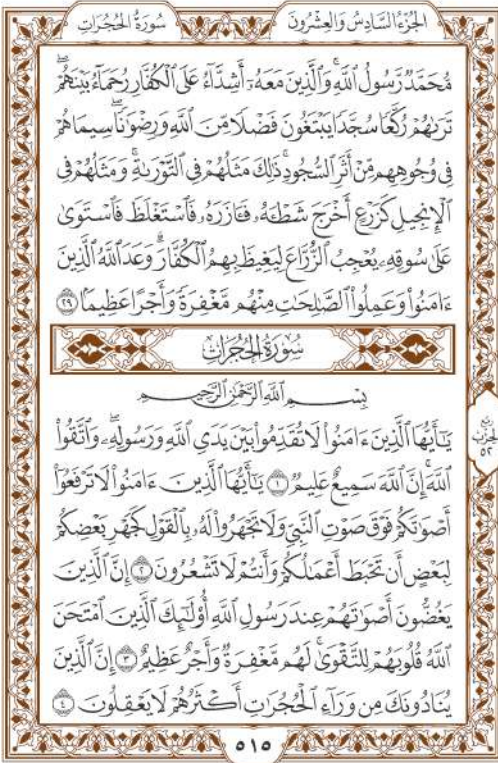 الجُزْءُ السَّادِسُ وَالعِشْرُونَ
سُورَةُ الحُجُرَاتِ
مُّحَمَّدٌ رَّسُولُ ٱللَّهِۚ وَٱلَّذِينَ مَعَهُۥٓ أَشِدَّآءُ عَلَى ٱلۡكُفَّارِ رُحَمَآءُ بَيۡنَهُمۡۖ
تَرَىٰهُمۡ رُكَّعٗا سُجَّدٗا يَبۡتَغُونَ فَضۡلٗا مِّنَ ٱللَّهِ وَرِضۡوَٰنٗاۖ سِيمَاهُمۡ
فِي وُجُوهِهِم مِّنۡ أَثَرِ ٱلسُّجُودِۚ ذَٰلِكَ مَثَلُهُمۡ فِي ٱلتَّوۡرَىٰةِۚ وَمَثَلُهُمۡ فِي
ٱلۡإِنجِيلِ كَزَرۡعٍ أَخۡرَجَ شَطۡـَٔهُۥ فَـَٔازَرَهُۥ فَٱسۡتَغۡلَظَ فَٱسۡتَوَىٰ
عَلَىٰ سُوقِهِۦ يُعۡجِبُ ٱلزُّرَّاعَ لِيَغِيظَ بِهِمُ ٱلۡكُفَّارَۗ وَعَدَ ٱللَّهُ ٱلَّذِينَ
ءَامَنُواْ وَعَمِلُواْ ٱلصَّٰلِحَٰتِ مِنۡهُم مَّغۡفِرَةٗ وَأَجۡرًا عَظِيمَۢا ٢٩
سُورَةُ الحُجُرَاتِ
بِسۡمِ ٱللَّهِ ٱلرَّحۡمَٰنِ ٱلرَّحِيمِ
يَـٰٓأَيُّهَا ٱلَّذِينَ ءَامَنُواْ لَا تُقَدِّمُواْ بَيۡنَ يَدَيِ ٱللَّهِ وَرَسُولِهِۦۖ وَٱتَّقُواْ
ٱللَّهَۚ إِنَّ ٱللَّهَ سَمِيعٌ عَلِيمٞ ١ يَـٰٓأَيُّهَا ٱلَّذِينَ ءَامَنُواْ لَا تَرۡفَعُوٓاْ
أَصۡوَٰتَكُمۡ فَوۡقَ صَوۡتِ ٱلنَّبِيِّ وَلَا تَجۡهَرُواْ لَهُۥ بِٱلۡقَوۡلِ كَجَهۡرِ بَعۡضِكُمۡ
لِبَعۡضٍ أَن تَحۡبَطَ أَعۡمَٰلُكُمۡ وَأَنتُمۡ لَا تَشۡعُرُونَ ٢ إِنَّ ٱلَّذِينَ
يَغُضُّونَ أَصۡوَٰتَهُمۡ عِندَ رَسُولِ ٱللَّهِ أُوْلَـٰٓئِكَ ٱلَّذِينَ ٱمۡتَحَنَ
ٱللَّهُ قُلُوبَهُمۡ لِلتَّقۡوَىٰۚ لَهُم مَّغۡفِرَةٞ وَأَجۡرٌ عَظِيمٌ ٣ إِنَّ ٱلَّذِينَ
يُنَادُونَكَ مِن وَرَآءِ ٱلۡحُجُرَٰتِ أَكۡثَرُهُمۡ لَا يَعۡقِلُونَ ٤
ربع
الحزب
٥٢
٥١٥